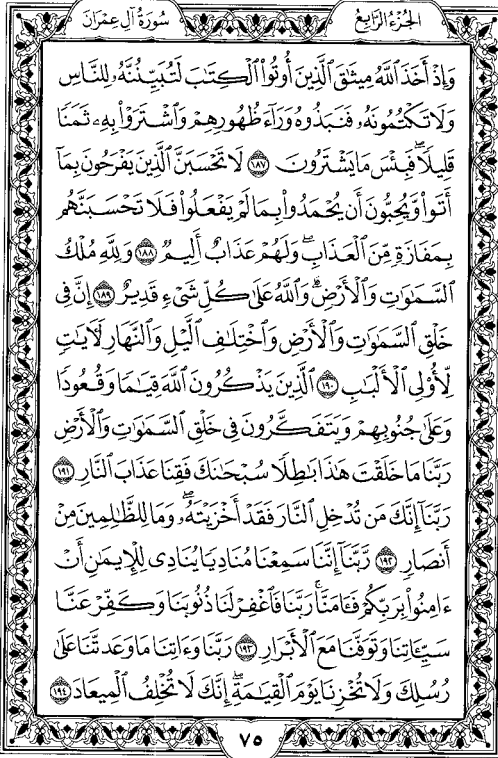 سُورَةُ آلِ عِمْرَانَ الجُزْءُ الرَّابِعُ
وَإِذْ أَخَذَ ٱللَّهُ مِيثَٰقَ ٱلَّذِينَ أُوتُوا۟ ٱلْكِتَٰبَ لَتُبَيِّنُنَّهُۥ لِلنَّاسِ
وَلَا تَكْتُمُونَهُۥ فَنَبَذُوهُ وَرَآءَ ظُهُورِهِمْ وَٱشْتَرَوْا۟ بِهِۦ ثَمَنًا
قَلِيلًا ۖ فَبِئْسَ مَا يَشْتَرُونَ ١٨٧ لَا تَحْسَبَنَّ ٱلَّذِينَ يَفْرَحُونَ بِمَآ
أَتَوا۟ وَّيُحِبُّونَ أَن يُحْمَدُوا۟ بِمَا لَمْ يَفْعَلُوا۟ فَلَا تَحْسَبَنَّهُم
بِمَفَازَةٍ مِّنَ ٱلْعَذَابِ ۖ وَلَهُمْ عَذَابٌ أَلِيمٌ ١٨٨ وَلِلَّهِ مُلْكُ
ٱلسَّمَٰوَٰتِ وَٱلْأَرْضِ ۗ وَٱللَّهُ عَلَىٰ كُلِّ شَىْءٍ قَدِيرٌ ١٨٩ إِنَّ فِى
خَلْقِ ٱلسَّمَٰوَٰتِ وَٱلْأَرْضِ وَٱخْتِلَٰفِ ٱلَّيْلِ وَٱلنَّهَارِ لَءَايَٰتٍ
لِّأُو۟لِى ٱلْأَلْبَٰبِ ١٩٠ ٱلَّذِينَ يَذْكُرُونَ ٱللَّهَ قِيَٰمًا وَقُعُودًا
وَعَلَىٰ جُنُوبِهِمْ وَيَتَفَكَّرُونَ فِى خَلْقِ ٱلسَّمَٰوَٰتِ وَٱلْأَرْضِ
رَبَّنَا مَا خَلَقْتَ هَٰذَا بَٰطِلًا سُبْحَٰنَكَ فَقِنَا عَذَابَ ٱلنَّارِ ١٩١
رَبَّنَآ إِنَّكَ مَن تُدْخِلِ ٱلنَّارَ فَقَدْ أَخْزَيْتَهُۥ ۖ وَمَا لِلظَّٰلِمِينَ مِنْ
أَنصَارٍ ١٩٢ رَّبَّنَآ إِنَّنَا سَمِعْنَا مُنَادِيًا يُنَادِى لِلْإِيمَٰنِ أَنْ
ءَامِنُوا۟ بِرَبِّكُمْ فَـَٔامَنَّا ۚ رَبَّنَا فَٱغْفِرْ لَنَا ذُنُوبَنَا وَكَفِّرْ عَنَّا
سَيِّـَٔاتِنَا وَتَوَفَّنَا مَعَ ٱلْأَبْرَارِ ١٩٣ رَبَّنَا وَءَاتِنَا مَا وَعَدتَّنَا عَلَىٰ
رُسُلِكَ وَلَا تُخْزِنَا يَوْمَ ٱلْقِيَٰمَةِ ۗ إِنَّكَ لَا تُخْلِفُ ٱلْمِيعَادَ ١٩٤
٧٥